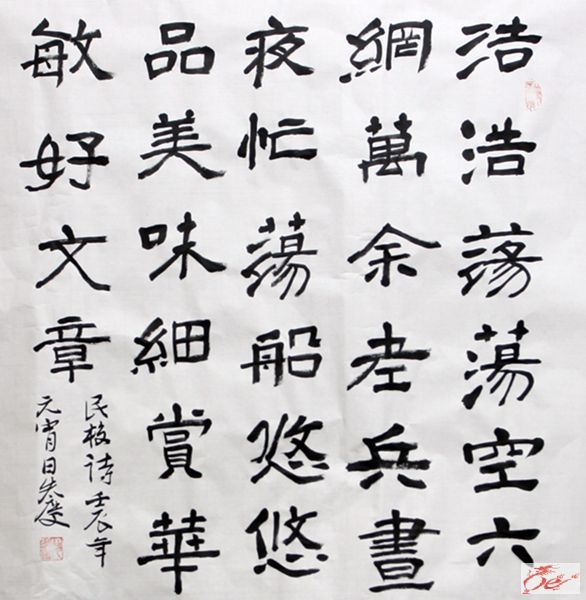 浩浩荡蕩空六
網萬余老兵晝
夜忙蕩船悠悠
品美味細賞華
敏好文章
民诗壬辰年
元宵日